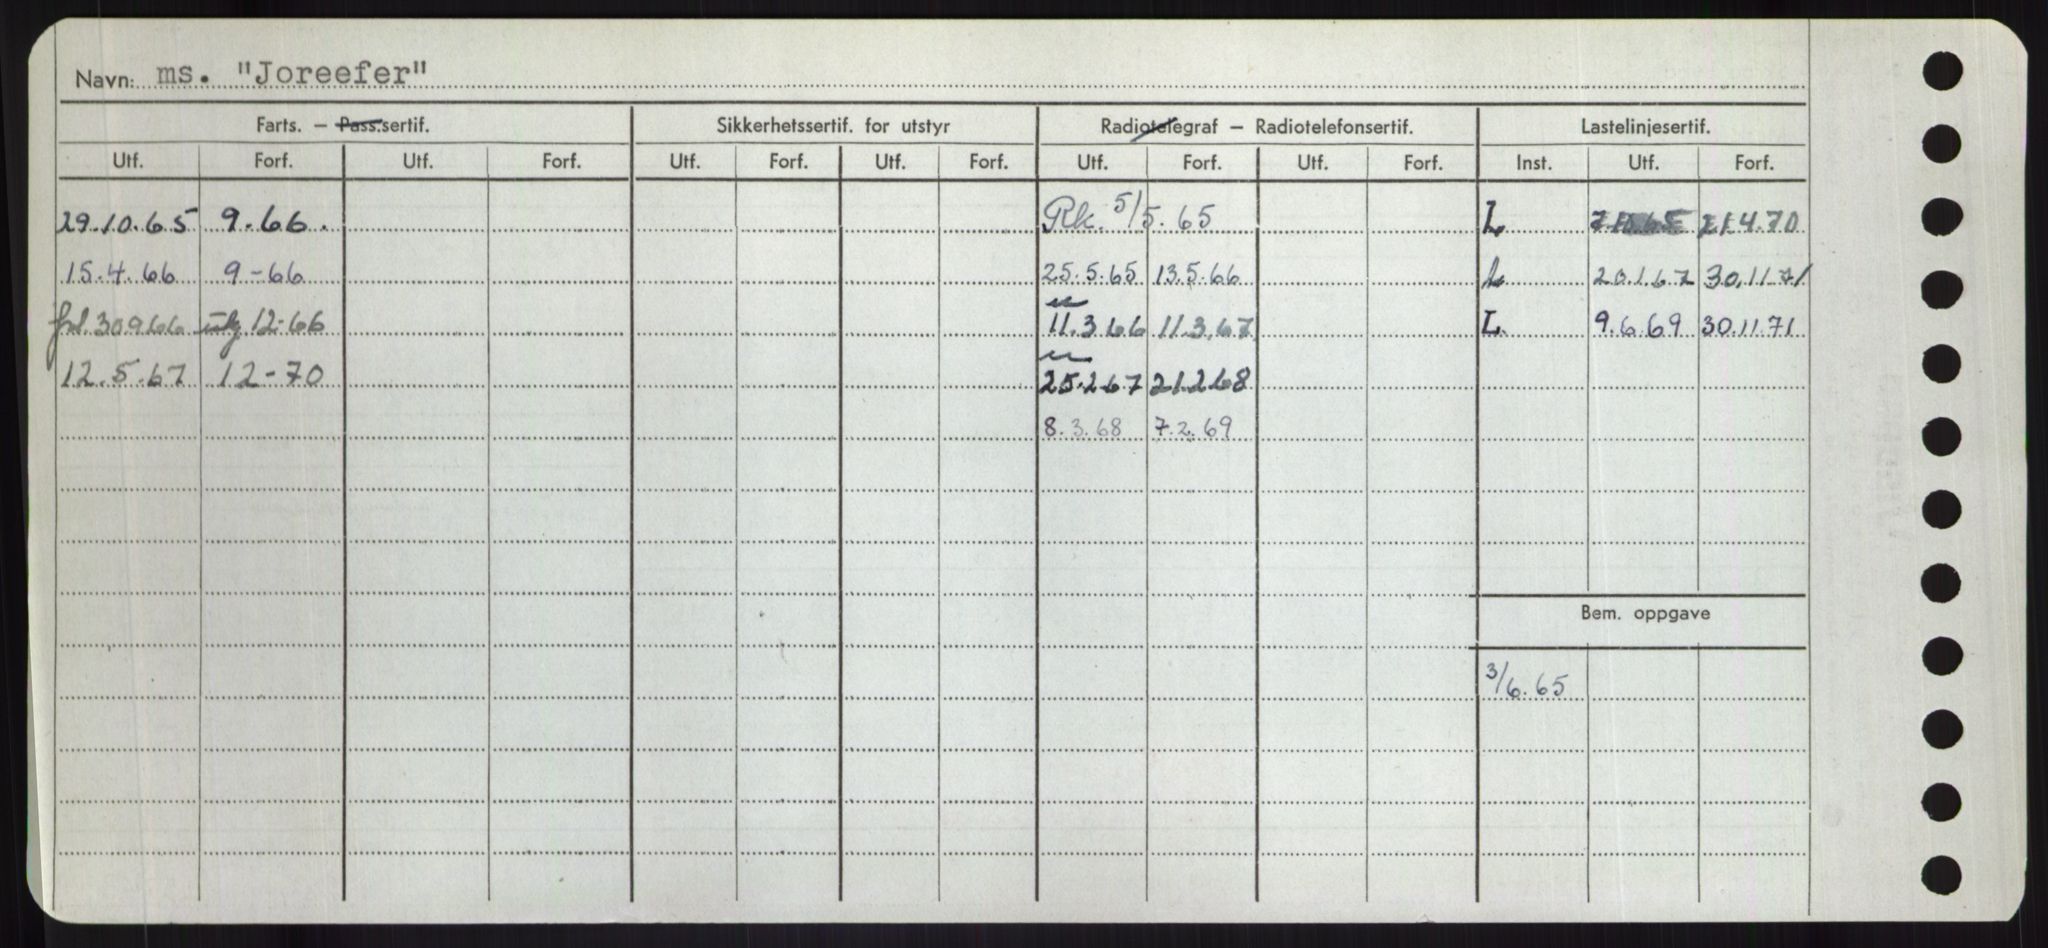 Navn: ms. "Joreefer"
Farts. – Pass.sertif. Sikkerhetssertif. for utstyr Radiotelegraf – Radiotelefonsertif. Lastelinjesertif.
Utf. Forf. Utf. Forf. Utf. Forf. Utf. Forf. Utf. Forf. Utf. Forf. Inst. Utf. Forf.
29.10.65 9.66. Rk. 5/5.65 L 21.4.70
15.4.66 9-66 25.5.65 13.5.66 L 20.1.67 30.11.71
30.9.66 12-66 11.3.66 11.3.67 L. 9.6.69 30.11.71
12.5.67 12-70 25.2.67 21.2.68
8.3.68 7.2.69
Bem. oppgave
3/6.65